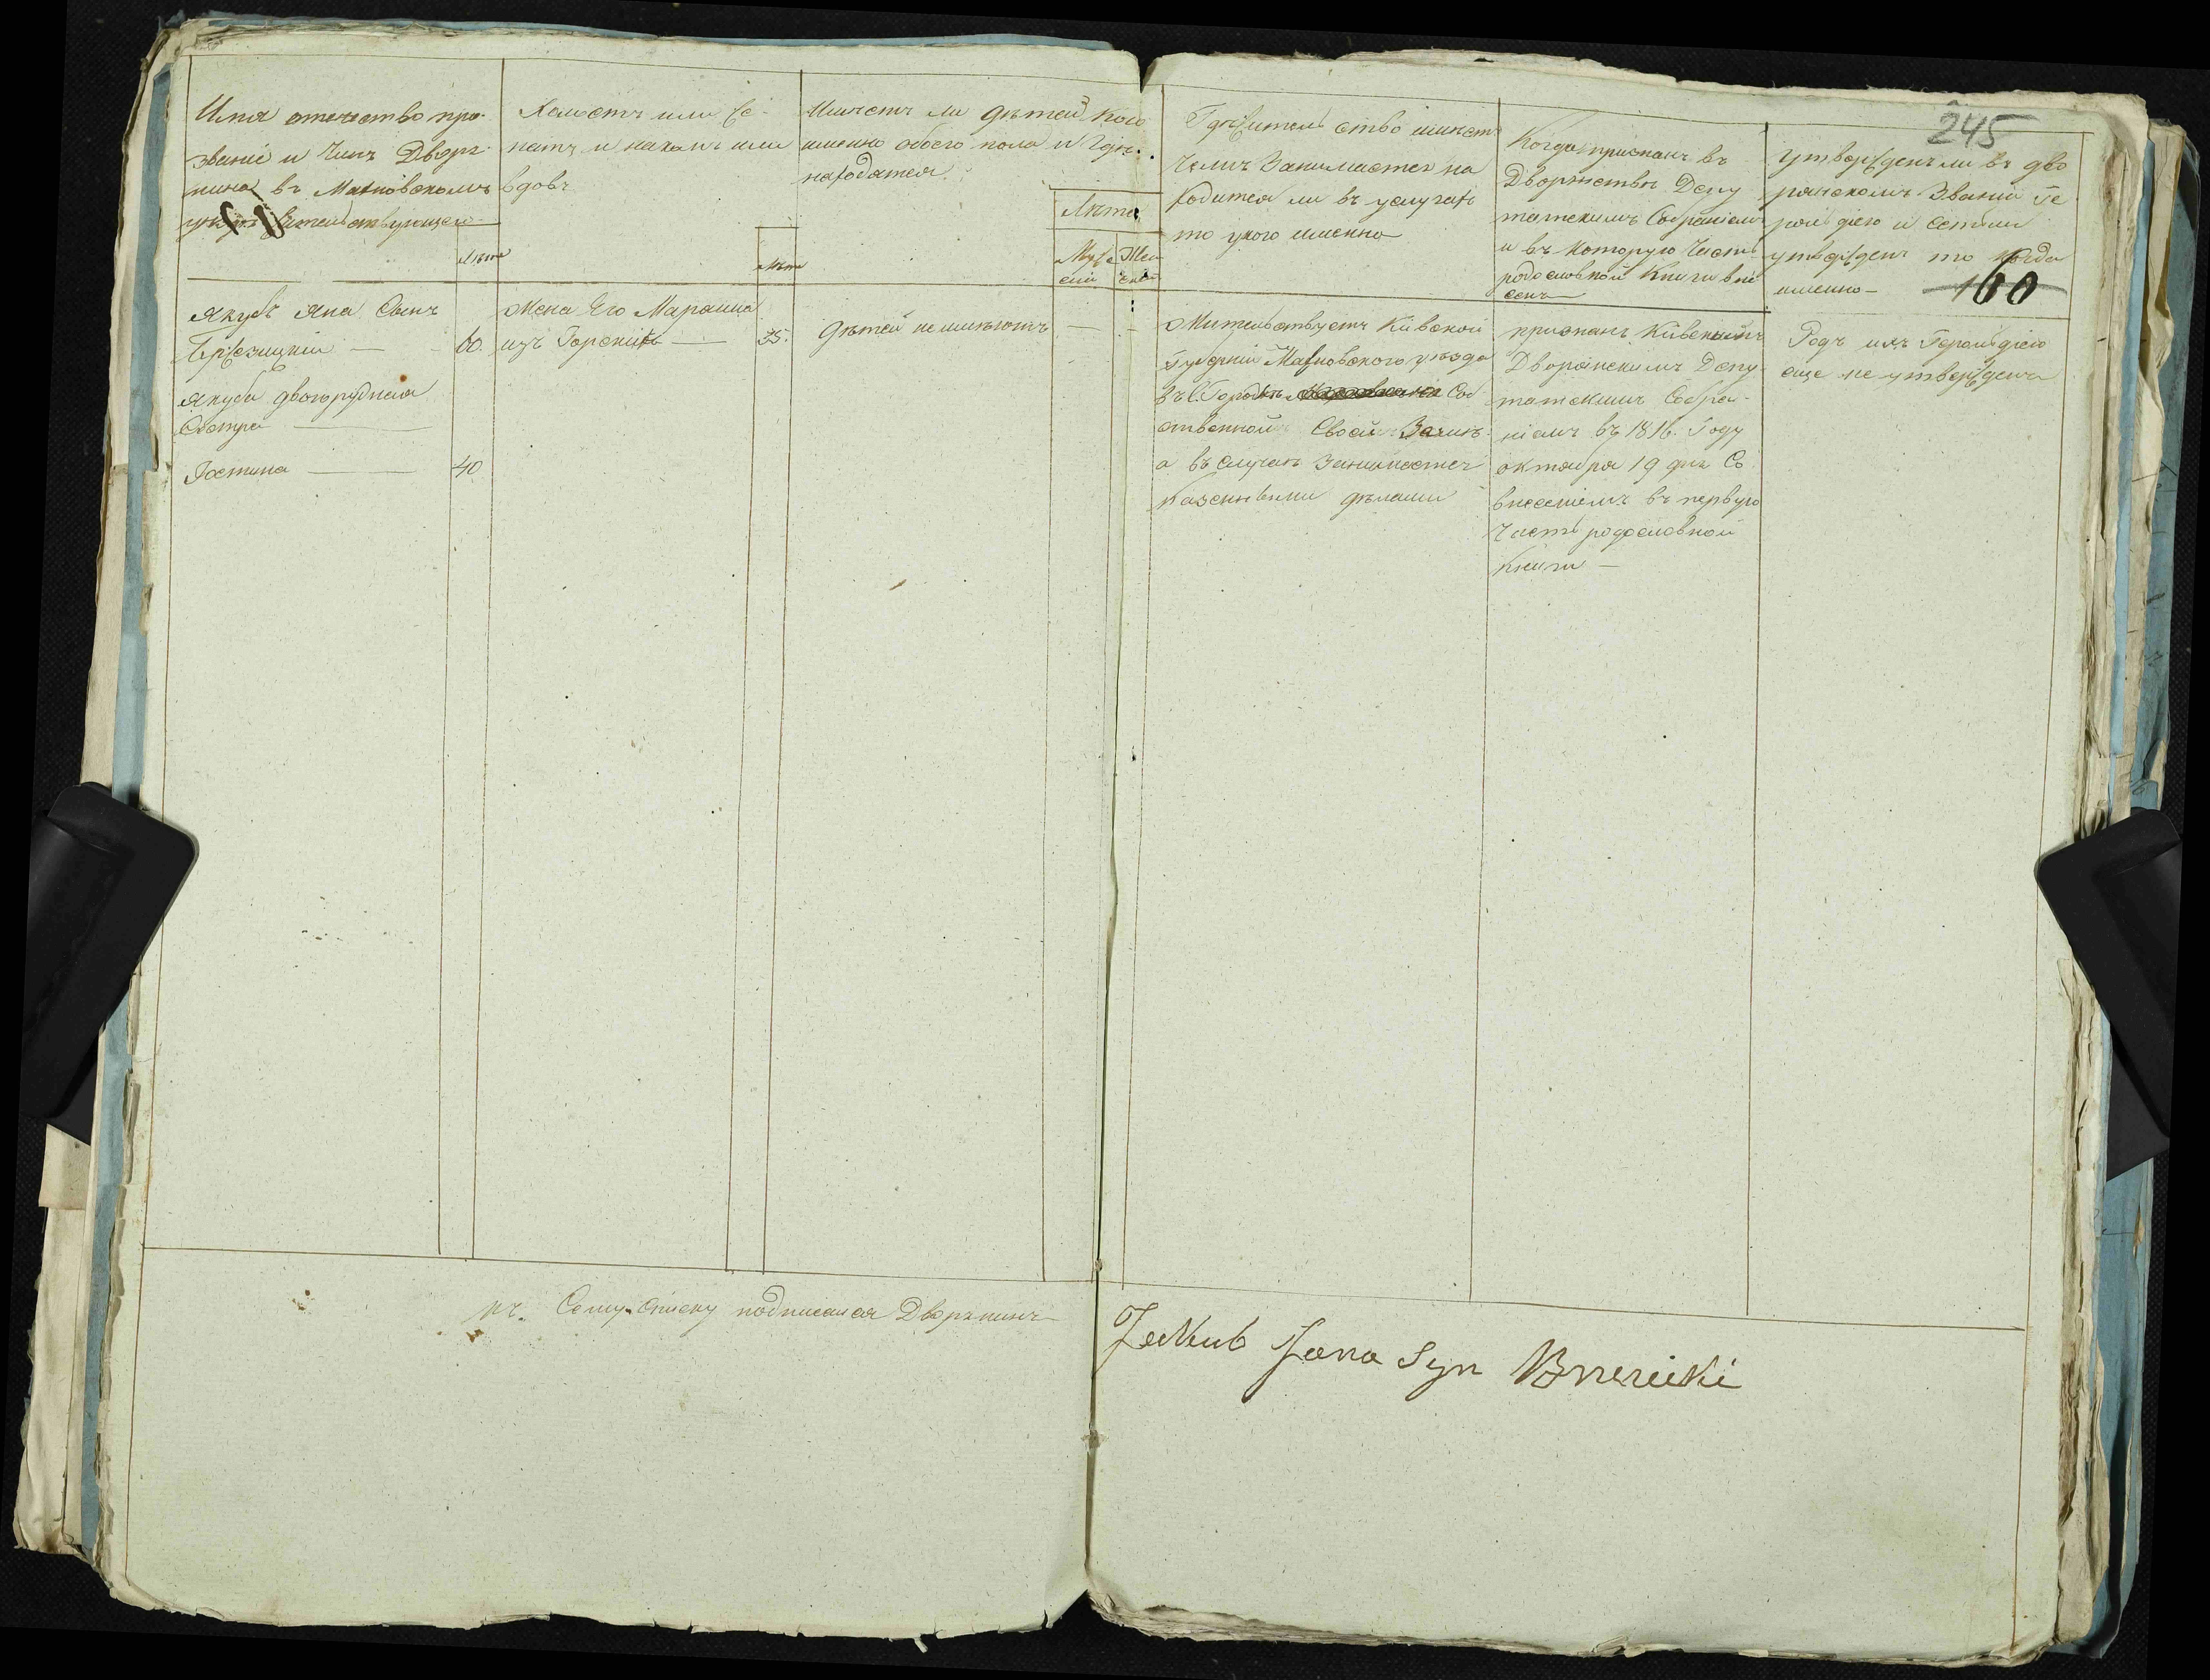 245
160
Имя отечество про-
званіе и Чинъ Дворя-
нина въ Махновскомъ
уѣздѣ жительствующаго
Лѣта
Холостъ или Же-
натъ и накомъ или
вдовъ
Лѣта
Имѣетъ ли дѣтей кого
именно обоего пола и Гдѣ
находятся
Лѣта
Муже
скій
Жен
скій
Гдѣ жительство имѣетъ
Чемъ Занимается на
ходится ли въ услугахъ
то укого именно
Когда признанъ въ
Дворянствѣ Депу
татскимъ Собраніемъ
и въ которую Часть
родословной Книги вне
сенъ
Утвержденъ ли въ дво
рянскомъ Званіи Ге
рольдіею и естьли
утвержденъ то когда
именно
Якубъ Яна Сынъ
Бржезицкій — 60.
Якуба двоюродная
Сестра
Юстина — 40
Жена Его Марянна
изъ Горскихъ — 35.
Дѣтей неимѣютъ — —
Жительствуетъ Кіевской
Губерніи Махновского уѣзда
въ Соб
ственной Своей
а въ случаѣ Занимается
казенными дѣлами
признанъ Кіевскимъ
Дворянскимъ Депу
татскимъ Собра-
ніемъ въ 1816. Году
октября 19 дня Со
внесеніемъ въ первую
Часть родословной
Книги —
Родъ ихъ Герольдіею
еще не утвержденъ
къ Сему Списку подписался Дворянинъ
Jakub Jana Syn Brzezicki